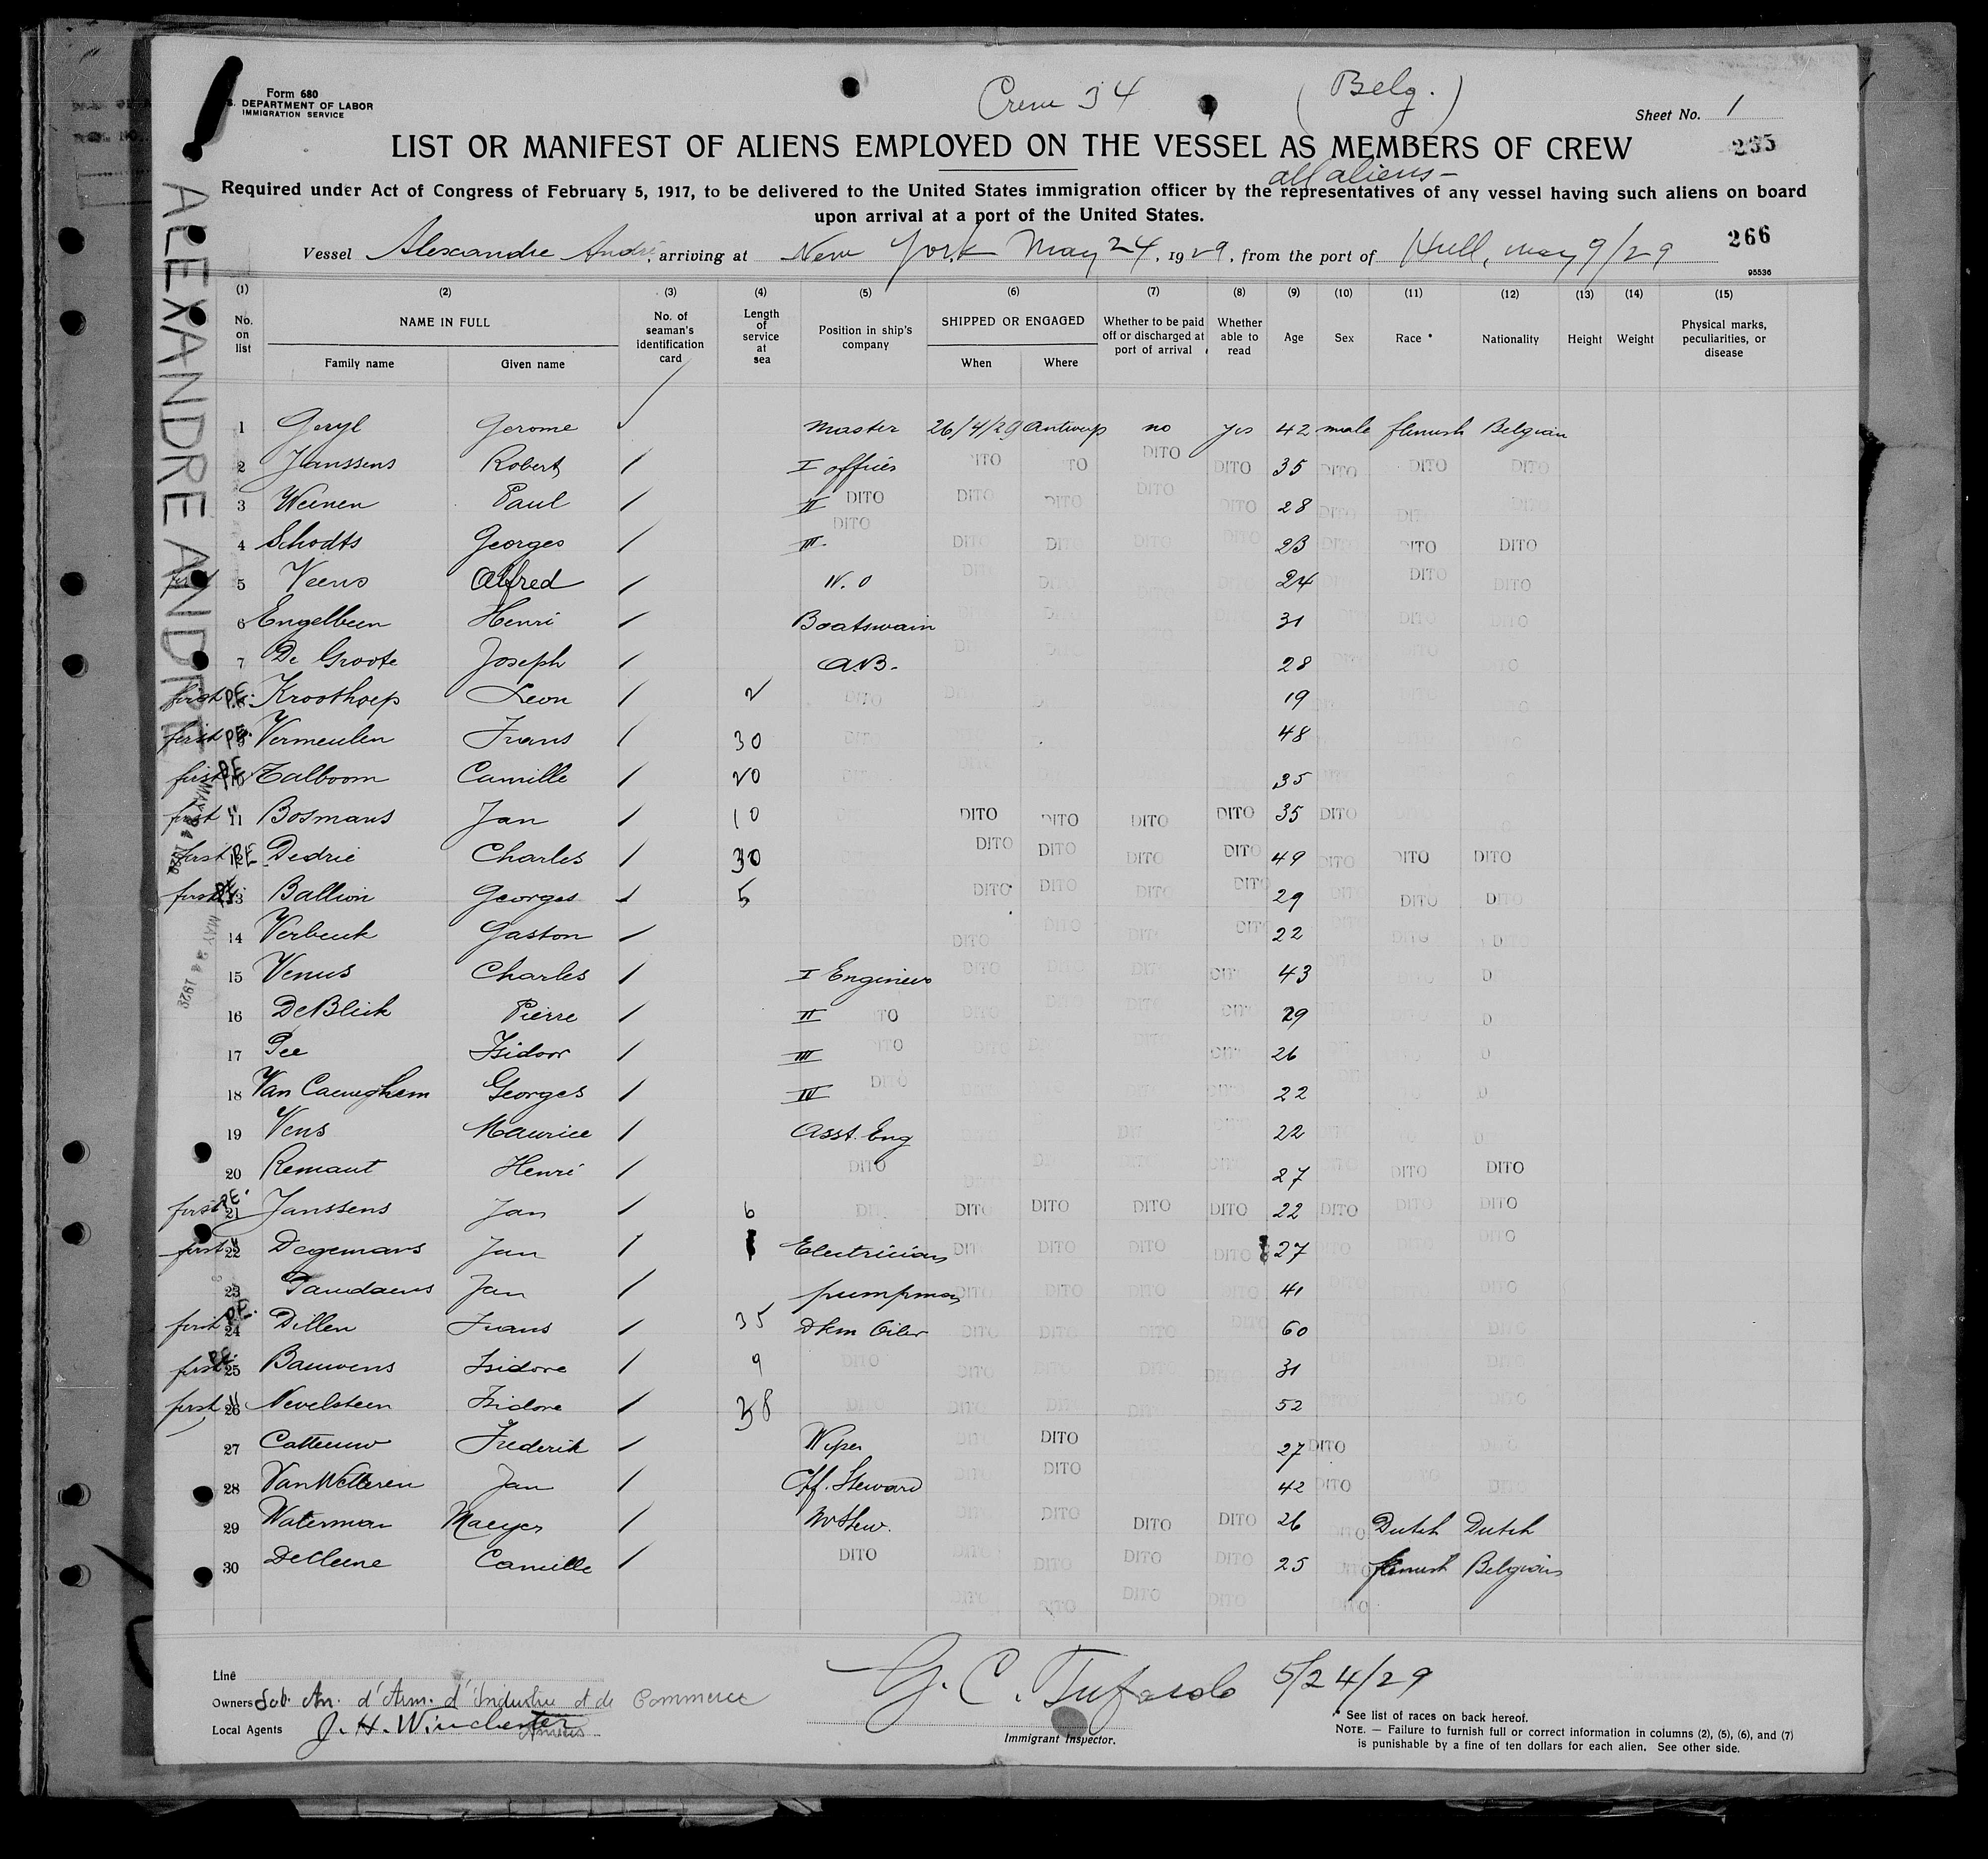 Form 680
S. DEPARTMENT OF LABOR
IMMIGRATION SERVICE
Crew 34 (Belg.)
Sheet No. 1
LIST OR MANIFEST OF ALIENS EMPLOYED ON THE VESSEL AS MEMBERS OF CREW
235
all aliens -
Required under Act of Congress of February 5, 1917, to be delivered to the United States immigration officer by the representatives of any vessel having such aliens on board
upon arrival at a port of the United States.
Vessel Alexandre André, arriving at New York May 24, 1929, from the port of Hull, May 9/29
266
95536
ALEXANDRE ANDRE
MAY 24 1929
MAY 24 1929
(1) (2) (3) (4) (5) (6) (7) (8) (9) (10) (11) (12) (13) (14) (15)
No. on list
NAME IN FULL
Family name Given name
No. of seaman's identification card
Length of service at sea
Position in ship's company
SHIPPED OR ENGAGED
When Where
Whether to be paid off or discharged at port of arrival
Whether able to read
Age Sex Race * Nationality Height Weight
Physical marks, peculiarities, or disease
1 Geryl Gerome Master 26/4/29 Antwerp no yes 42 male flemish Belgian
2 Janssens Robert I officer DITO DITO DITO DITO 35 DITO DITO DITO
3 Weenen Paul II DITO DITO DITO DITO DITO 28 DITO DITO DITO
4 Schodts Georges III DITO DITO DITO DITO DITO 23 DITO DITO DITO
5 Veens Alfred W.O 24 DITO DITO
6 Engelbeen Henri Boatswain 31 DITO DITO
7 De Groote Joseph A.B. 28
first P.E. Kroothoep Leon 2 DITO 19
first P.E. 9 Vermeulen Frans 30 48
first P.E. 10 Talboom Camille 20 35
first " 11 Bosmans Jan 10 DITO DITO DITO DITO 35 DITO
first P.E. 12 Dedrie Charles 30 DITO DITO DITO DITO 49 DITO DITO DITO
first P.E. 13 Ballion Georges 5 DITO DITO DITO DITO 29 DITO DITO DITO
14 Verbeuk Gaston DITO DITO DITO DITO 22 DITO DITO
15 Venus Charles I Engineer 43
16 DeBlick Pierre II DITO 29
17 Pee Isidoor III DITO 26
18 Van Caeneghem Georges IV DITO 22
19 Vens Maurice Asst. Eng 22
20 Remaut Henri DITO 27 DITO DITO
first P.E. 21 Janssens Jan 6 DITO DITO DITO DITO DITO 22 DITO DITO DITO
first " 22 Degemans Jan Electrician DITO DITO DITO DITO 27 DITO DITO
23 Jan pumpman DITO DITO DITO DITO 41 DITO
first P.E. 24 Dillen Frans 35 Dkm Oiler DITO DITO DITO DITO 60 DITO
first P.E. 25 Bauwens Isidore 9 DITO DITO DITO DITO DITO 31 DITO
first " 26 Nevelsteen Isidore 38 DITO DITO DITO DITO 52 DITO
27 Catteeuw Frederik Wiper DITO 27 DITO DITO
28 VanWetteren Jan Chf. Steward DITO 42 DITO DITO
29 Waterman Maeyer DITO DITO DITO 26 DITO Dutch Dutch
30 DeCleene Camille DITO DITO DITO DITO DITO 25 DITO flemish Belgian
DITO DITO DITO DITO DITO
Line
Owners Sob. An. d'Arm. d'Industrie et de Commerce
Local Agents J. H. Winchester
G. C. Tufarolo 5/24/29
Immigrant Inspector.
* See list of races on back hereof.
NOTE. — Failure to furnish full or correct information in columns (2), (5), (6), and (7)
is punishable by a fine of ten dollars for each alien. See other side.